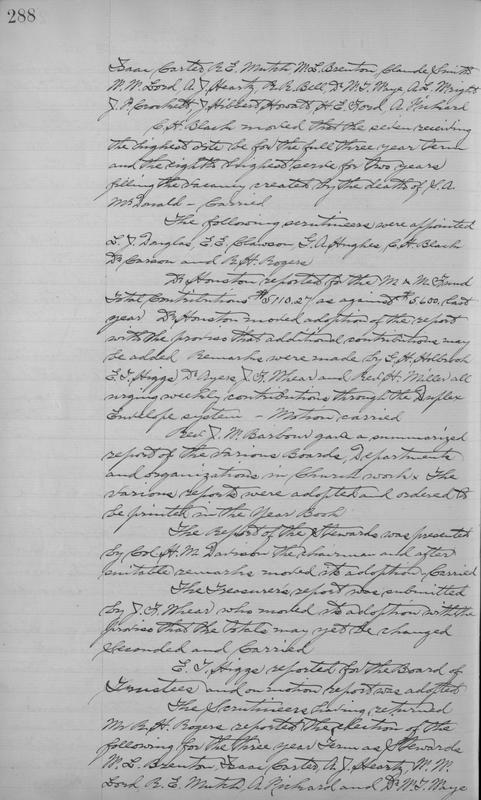 288
Isaac Carter R. E. Mutch, M. L. Brenton, Claude Smith
M. M. Lord, A. J. Heartz, R. R. Bell, Dr. M. T. Maye, A. L. Wright
J. P. Crockett, J. Hibbert Howatt, H. E. Ford, A. Pickard
C. H. Black moved that the seven receiving
the highest vote be for the full three year term
and the eighth highest serve for two years
filling the vacancy created by the death of S. A.
McDonald - Carried
The following scrutineers were appointed
L. J. Douglas, E. E. Clawson, G. A. Hughes, C. H. Black
Dr Carson and R. H. Rogers
Dr Houston reported for the M & M. Fund
Total Contributions $5110.27 as against $5,600. last
year Dr. Houston moved adoption of the report
with the proviso that additional contributions may
be added Remarks were made by L. H. Holbrook
E. T. Higgs, Dr Ayers, J. F. Whear and Rev. H. Miller all
urging weekly contributions through the Duplex
Envelope system - Motion carried
Rev J. M. Barbour gave a summarized
report of the various Boards, Departments
and organizations in Church work. The
various reports were adopted and ordered to
be printed in the Year Book
The Report of the Stewards was presented
by Col. H. M. Davison the chairman and after
suitable remarks moved its adoption, Carried
The Treasurer's report was submitted
by J. F. Whear who moved its adoption with the
proviso that the totals may yet be changed
Seconded and Carried
E. T. Higgs reported for the Board of
Trustees and on motion report was adopted
The Scrutineers having returned
Mr R. H. Rogers reported the election of the
following for the three year Term as Stewards
M. L. Brenton, Isaac Carter, A. J. Heartz, M. M.
Lord, R. E. Mutch, A. Pickard and Dr M. T. Maye